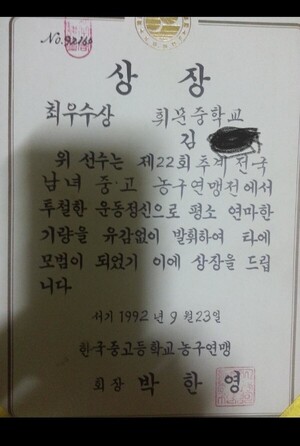 상 장
최우수상 휘문중학교
김
위 선수는 제22회 추계 전국
남녀 중·고 농구연맹전에서
투철한 운동정신으로 평소 연마한
기량을 유감없이 발휘하여 타에
모범이 되었기 이에 상장을 드립
니다.
서기 1992년 9월 23일
한국중고등학교농구연맹
회장 박한영